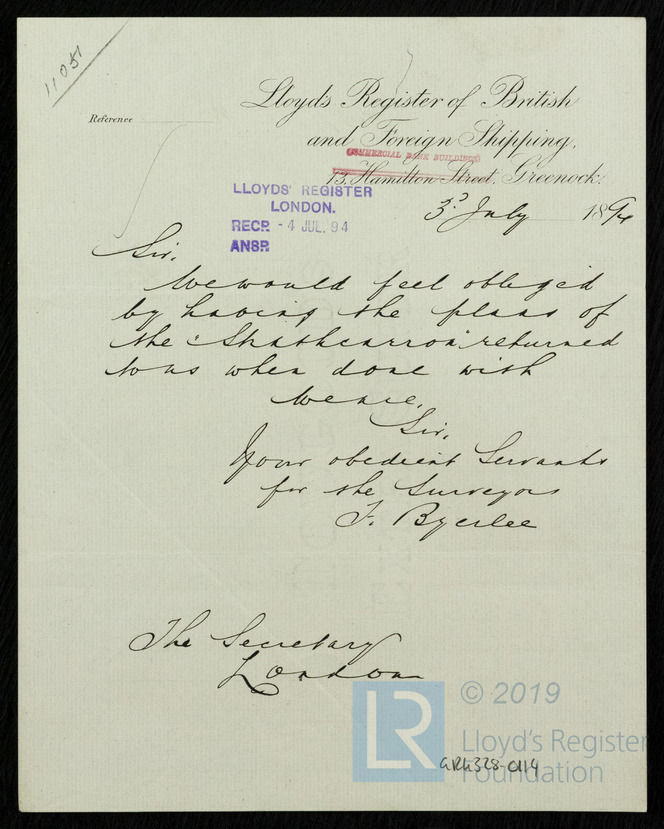 11051
Lloyds Register of British
Reference
and Foreign Shipping,
COMMERCIAL BANK BUILDINGS
13, Hamilton Street, Greenock.
LLOYDS' REGISTER
LONDON.
RECD. - 4 JUL. 94
ANSD.
3rd July 1894
Sir,
We would feel obliged
by having the plans of
the "Strathcarron" returned
to us when done with
We are,
Sir,
Your obedient Servants
for the Surveyors
F. Byerlee
The Secretary
London
LR
© 2019
Lloyd's Register
Foundation
GRK328-0114